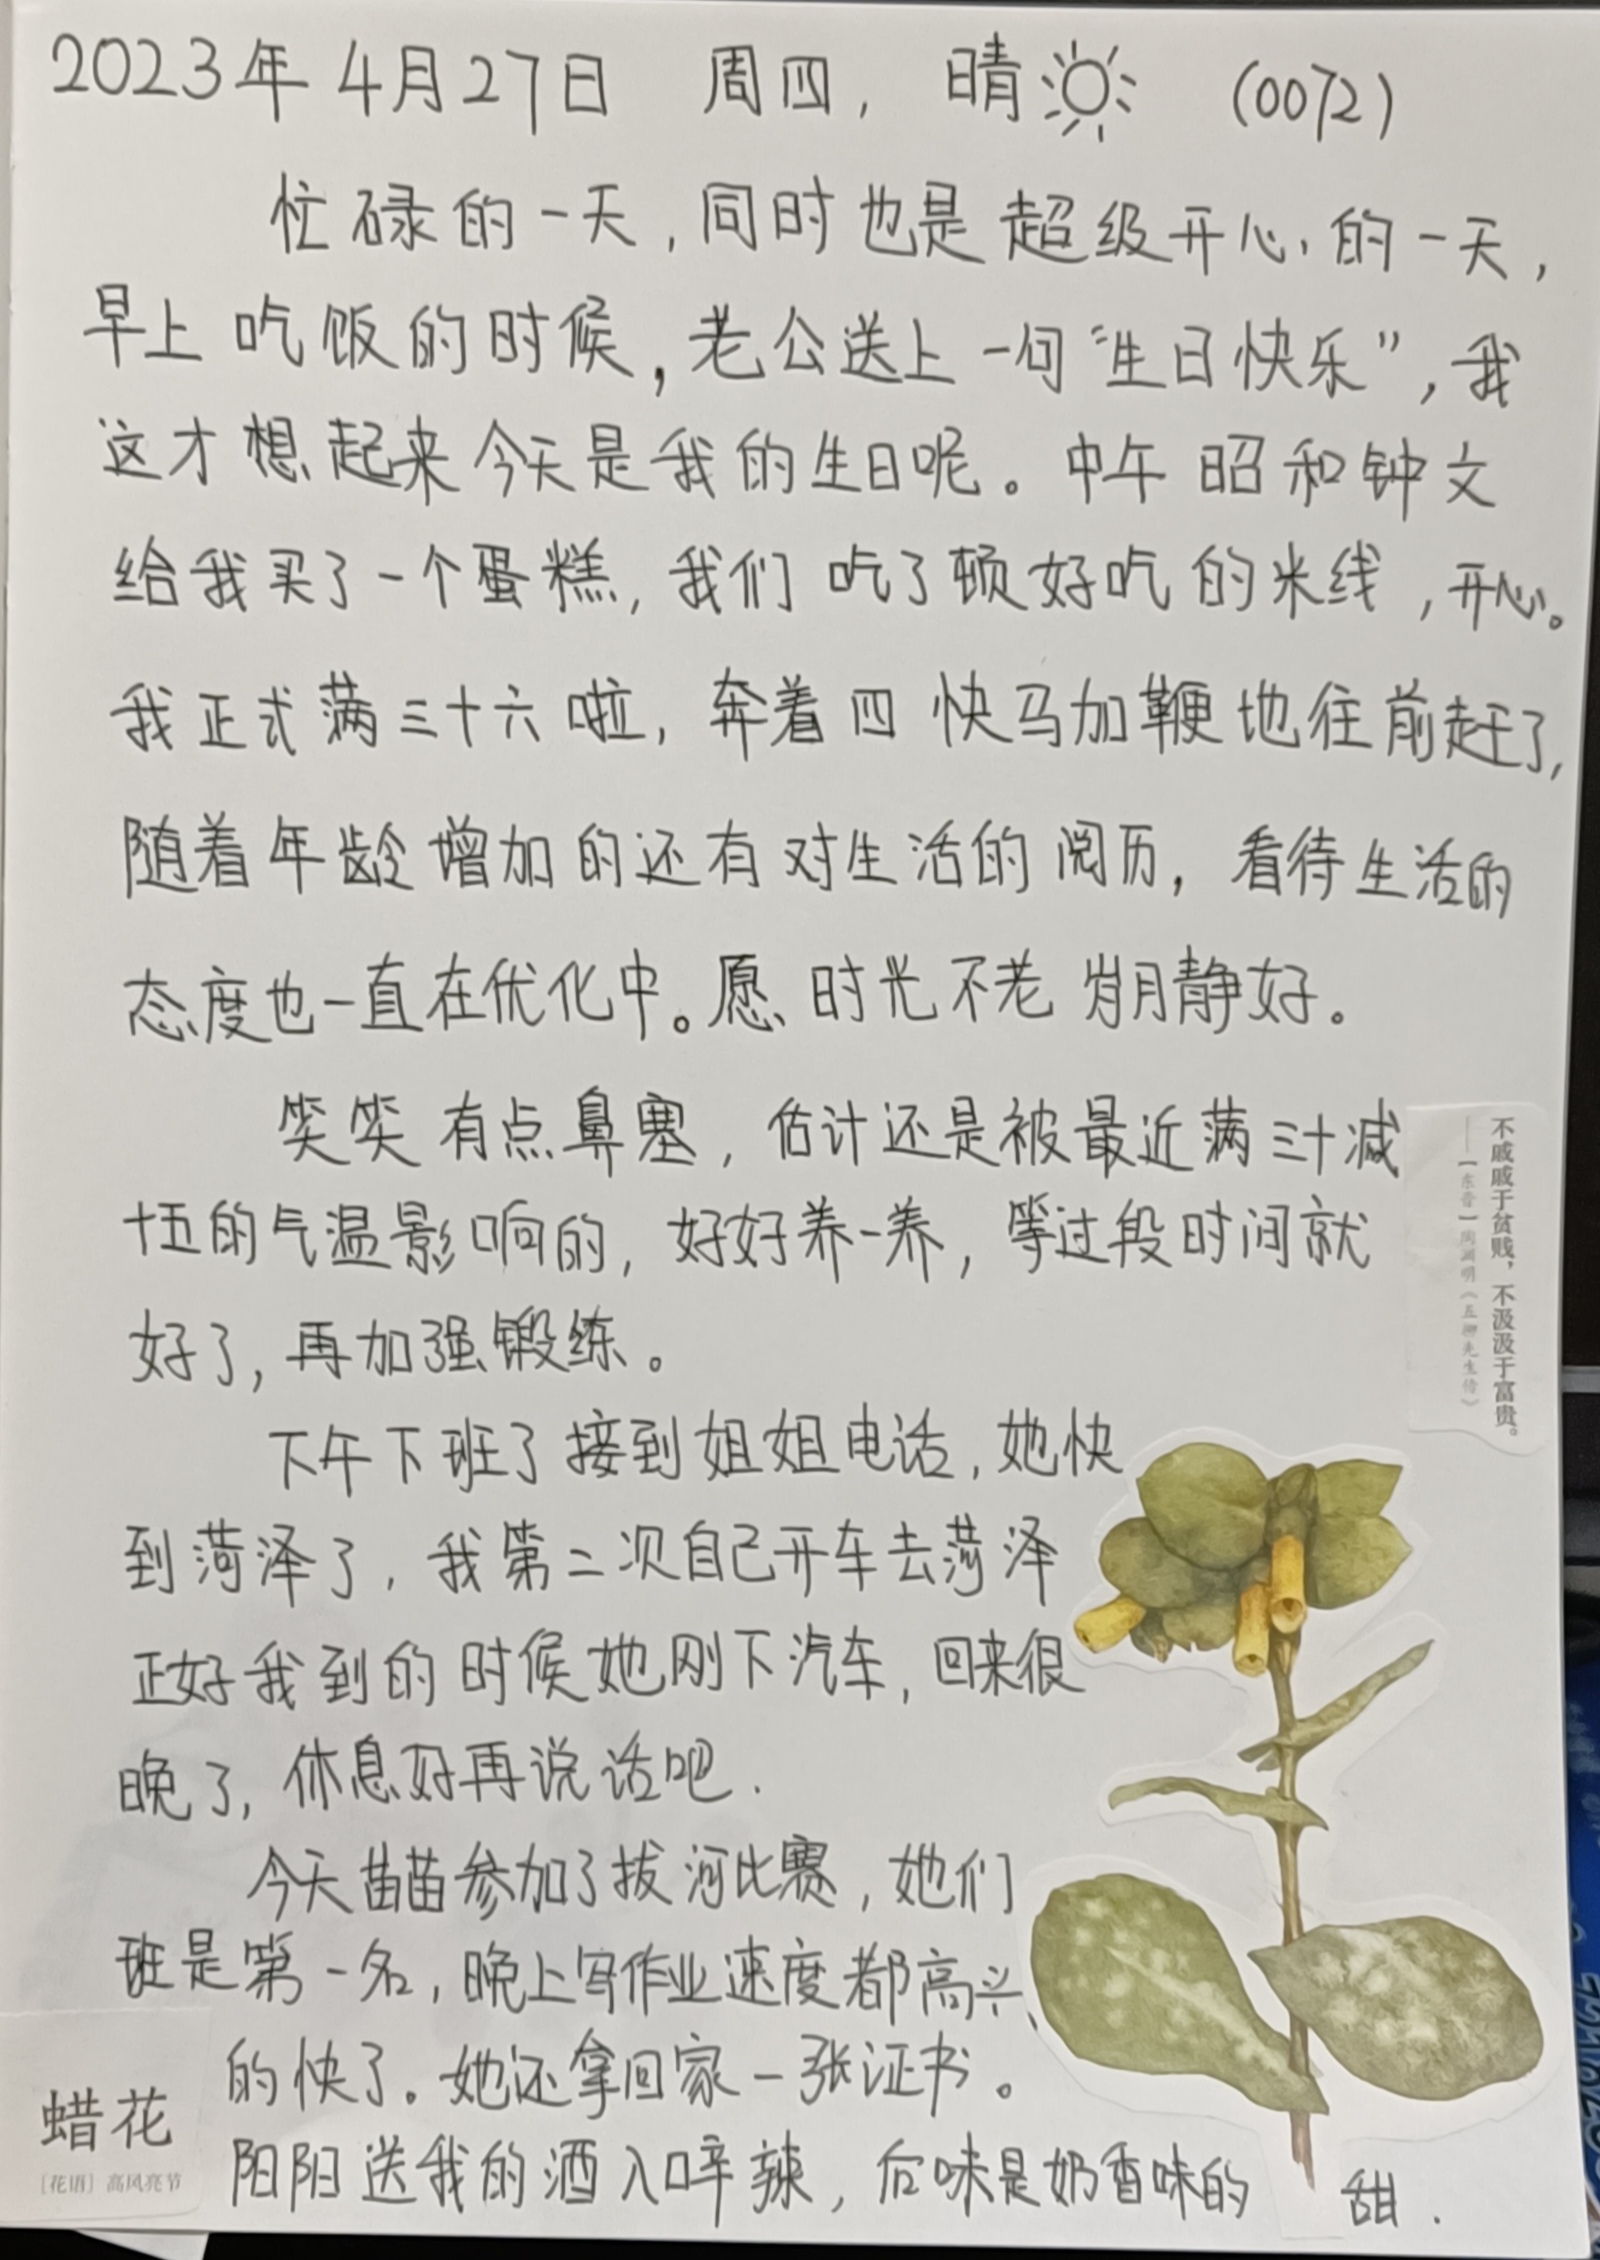 2023年4月27日 周四，晴 (0072)
忙碌的一天，同时也是超级开心的一天，
早上吃饭的时候，老公送上一句“生日快乐”，我
这才想起来今天是我的生日呢。中午昭和钟文
给我买了一个蛋糕，我们吃了顿好吃的米线，开心。
我正式满三十六啦，奔着四快马加鞭地往前赶了，
随着年龄增加的还有对生活的阅历，看待生活的
态度也一直在优化中。愿时光不老岁月静好。
笑笑有点鼻塞，估计还是被最近满三十减
十五的气温影响的，好好养一养，等过段时间就
好了，再加强锻练。
下午下班了接到姐姐电话，她快
到菏泽了，我第二次自己开车去菏泽
正好我到的时候她刚下汽车，回来很
晚了，休息好再说话吧.
今天苗苗参加了拔河比赛，她们
班是第一名，晚上写作业速度都高兴
的快了。她还拿回家一张证书。
阳阳送我的酒入口辛辣，后味是奶香味的 甜.
不戚戚于贫贱，不汲汲于富贵。
——[东晋]陶渊明《五柳先生传》
蜡花
[花语] 高风亮节